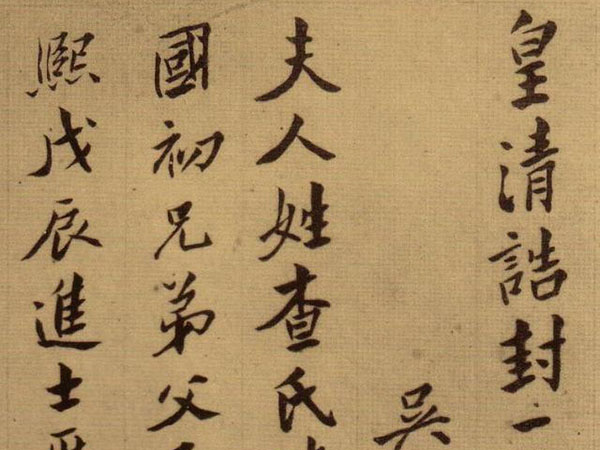 皇清誥封一
吳
夫人姓查氏
國初兄弟父
熙戊辰進士